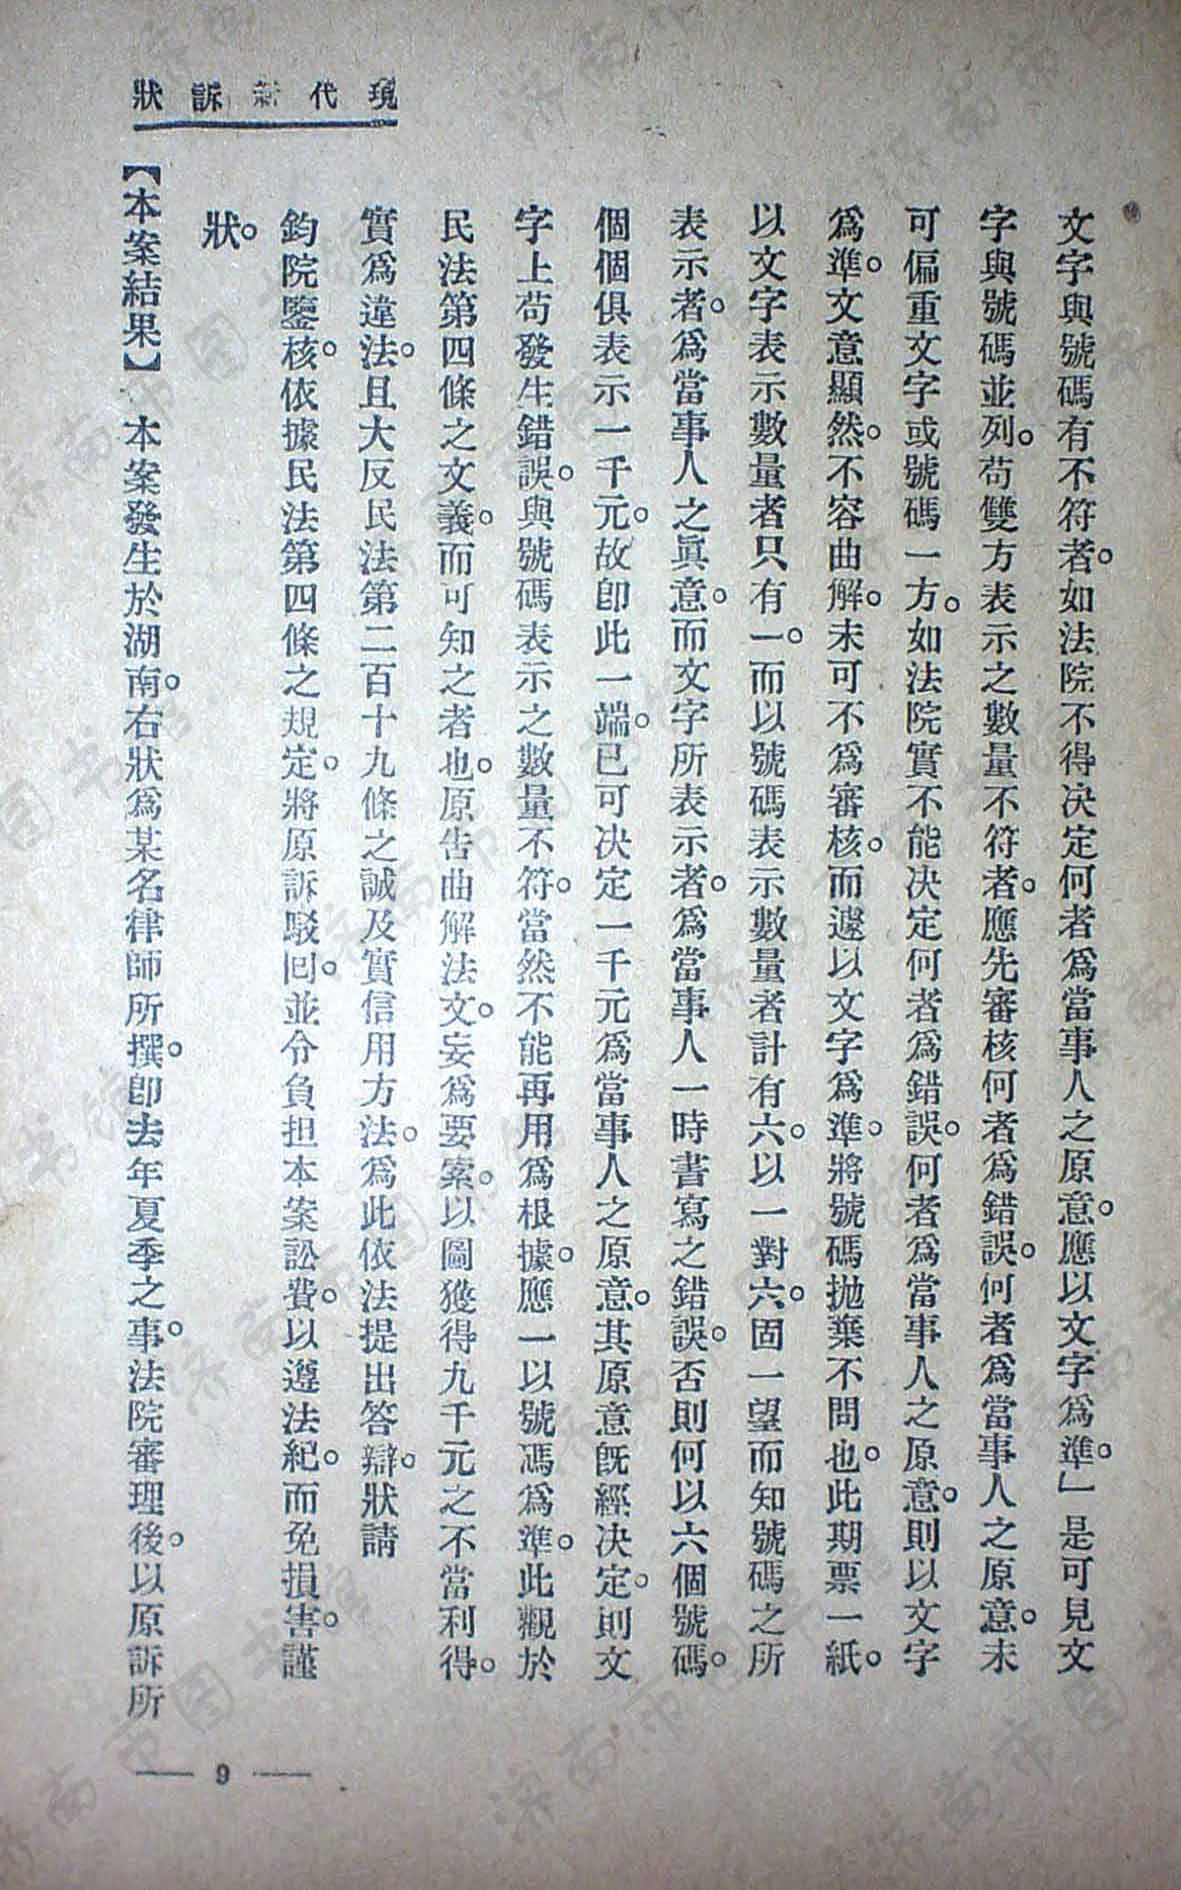 現代新訴狀
文字與號碼有不符者。如法院不得決定何者爲當事人之原意。應以文字爲準。」是可見文
字與號碼並列。苟雙方表示之數量不符者。應先審核何者爲錯誤。何者爲當事人之原意。未
可偏重文字或號碼一方。如法院實不能決定何者爲錯誤。何者爲當事人之原意。則以文字
爲準。文意顯然。不容曲解。未可不爲審核。而遽以文字爲準。將號碼拋棄不問也。此期票一紙。
以文字表示數量者只有一。而以號碼表示數量者計有六。以一對六。固一望而知號碼之所
表示者。爲當事人之眞意。而文字所表示者。爲當事人一時書寫之錯誤。否則何以六個號碼。
個個俱表示一千元。故卽此一端。已可決定一千元爲當事人之原意。其原意旣經決定。則文
字上苟發生錯誤。與號碼表示之數量不符。當然不能再用爲根據。應一以號碼爲準。此觀於
民法第四條之文義。而可知之者也。原告曲解法文。妄爲要索。以圖獲得九千元之不當利得。
實爲違法。且大反民法第二百十九條之誠及實信用方法。爲此依法提出答辯。狀請
鈞院鑒核。依據民法第四條之規定。將原訴駁回。並令負担本案訟費。以遵法紀。而免損害。謹
狀。
【本案結果】 本案發生於湖南。右狀爲某名律師所撰。卽去年夏季之事。法院審理後。以原訴所
— 9 —
济南市图书馆